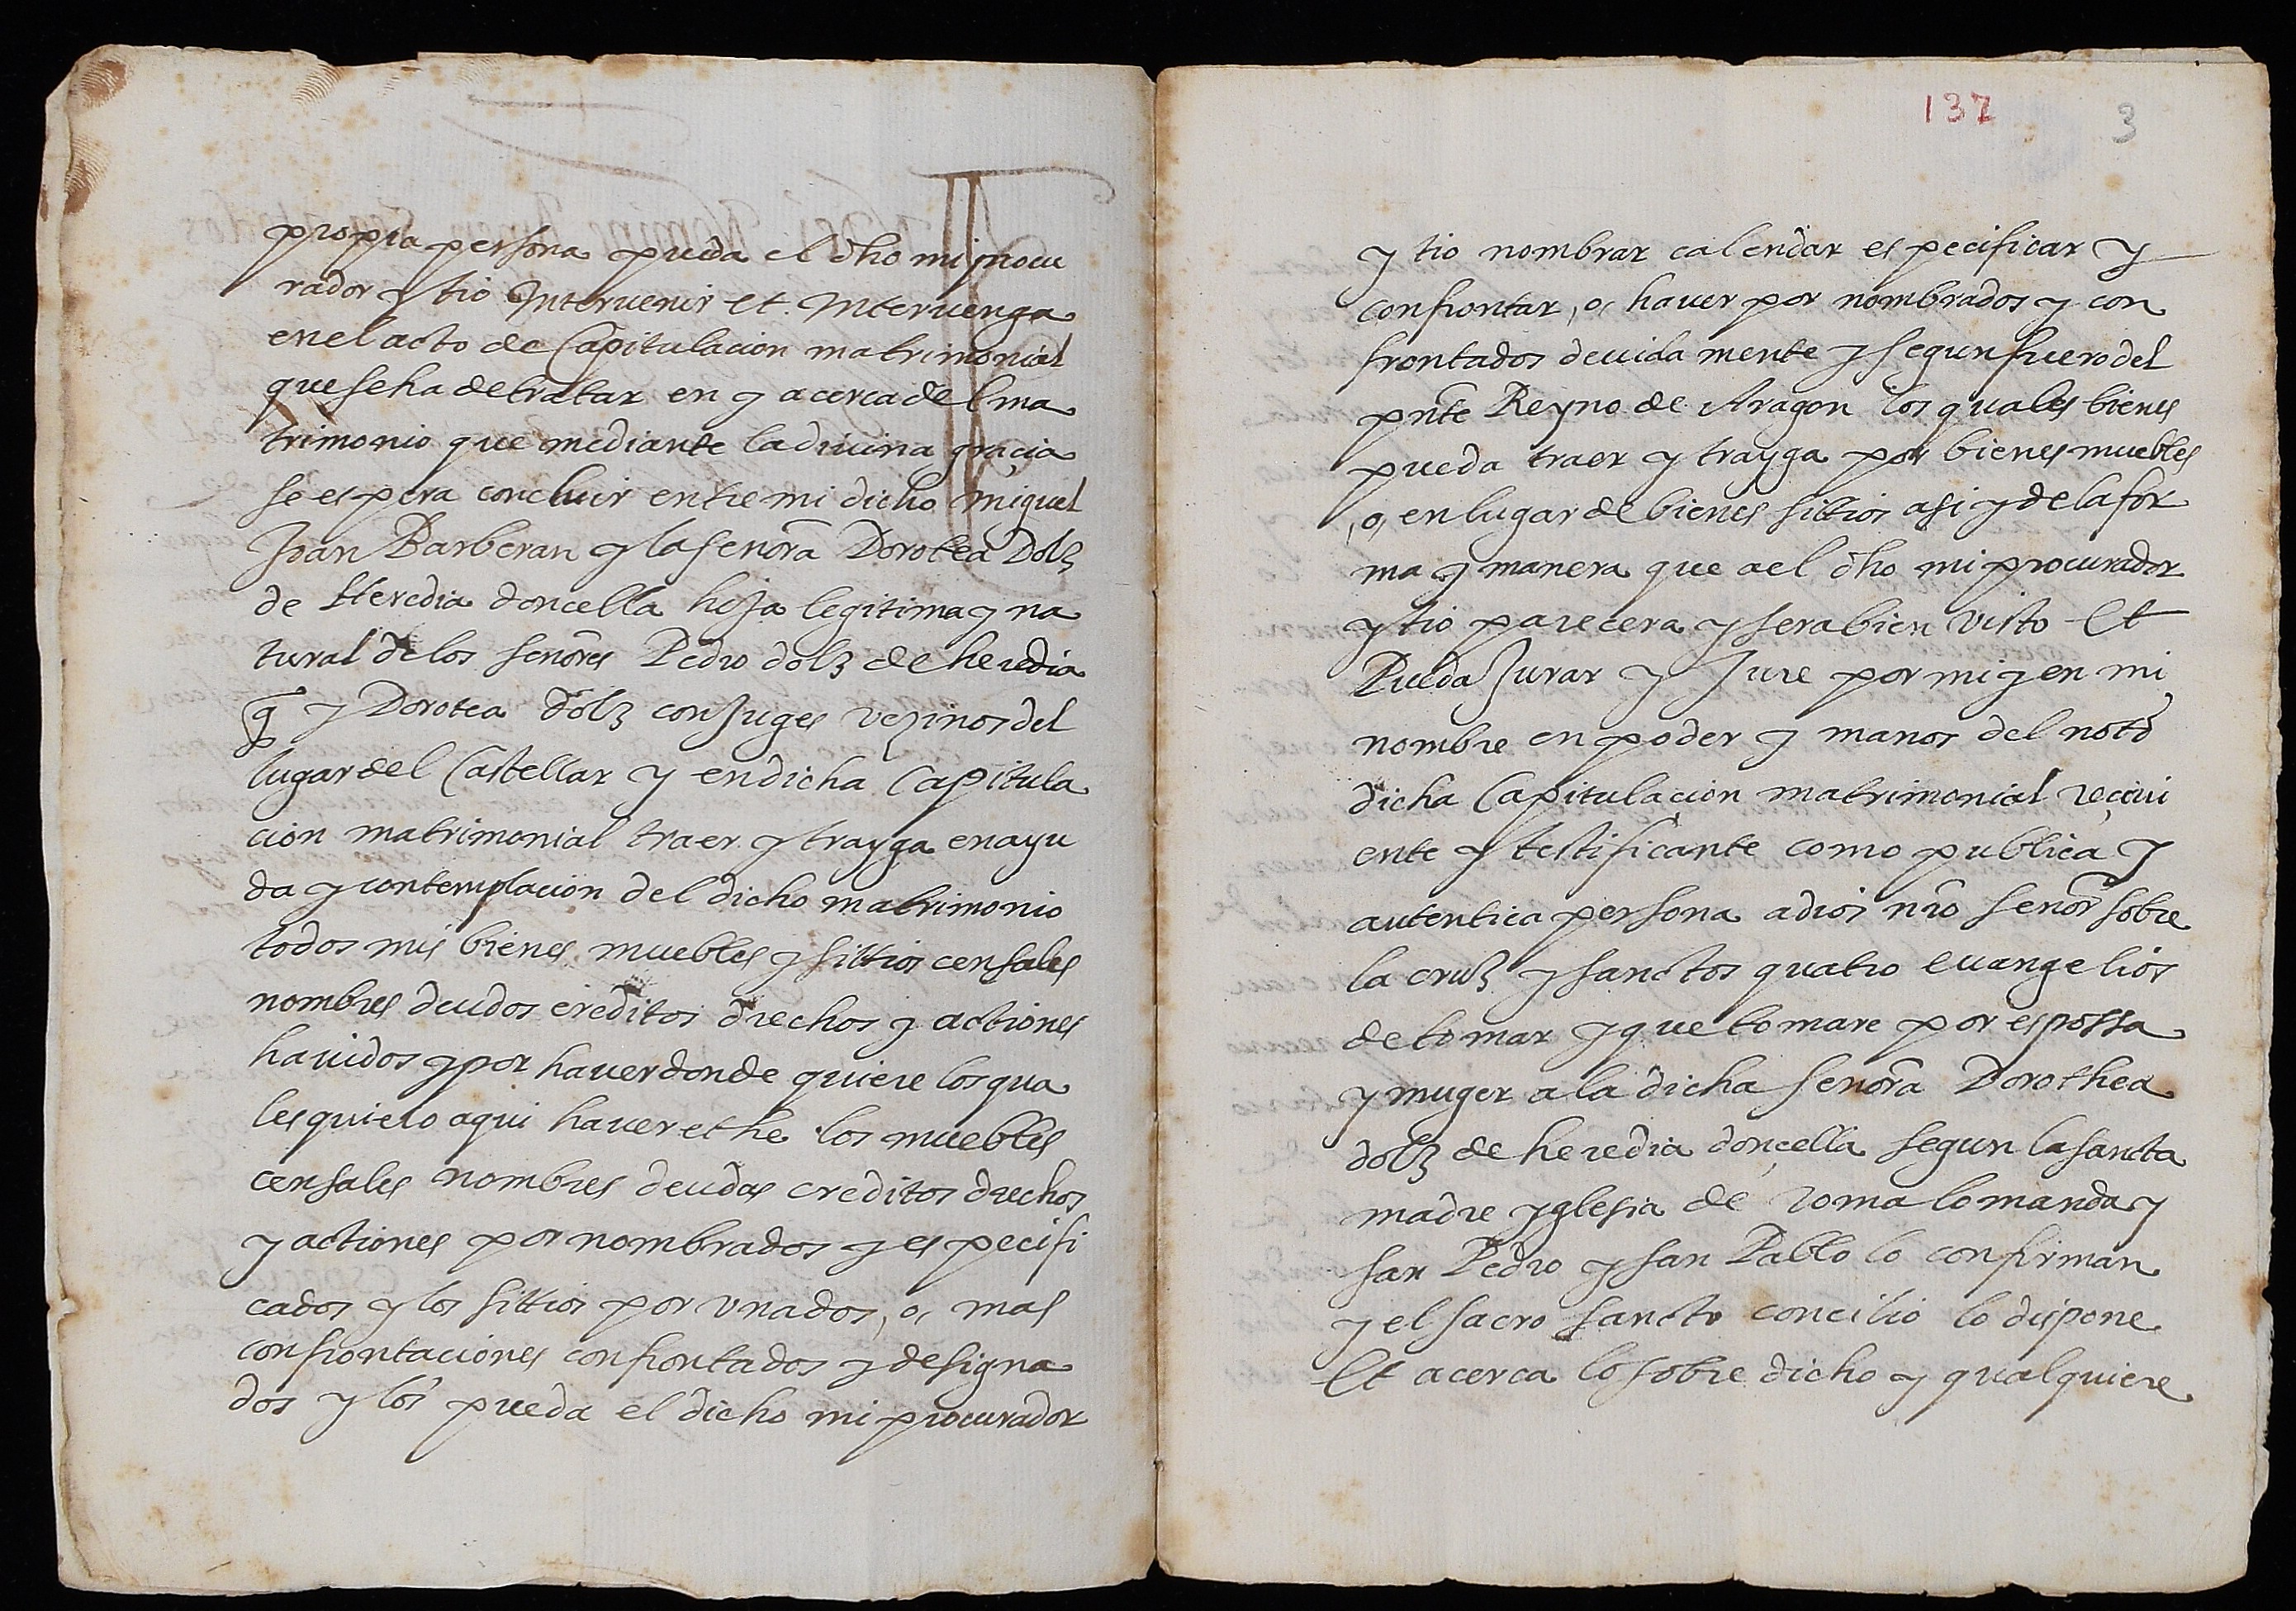 propia persona pueda el dho mi procu
rador y tio Intervenir et Intervenga
en el acto de Capitulacion matrimonial
que se ha de tratar en y acerca del ma
trimonio que mediante la diuina gracia
se espera concluir entre mi dicho miguel
Joan Barberan y la señora Dorotea Dolz
de Heredia doncella hija legitima y na
tural de los señores Pedro dolz de heredia
y Dorotea dolz conJuges vezinos del
lugar del Castellar y en dicha Capitula
cion matrimonial traer y trayga en ayu
da y contemplacion del dicho matrimonio
todos mis bienes muebles y sittios censales
nombres deudos creditos drechos y actiones
hauidos y por hauer donde quiere los qua
les quiero aqui hauer et he los muebles
censales nombres deudas creditos drechos
y actiones por nombrados y especifi
cados y los sittios por vna dos, o, mas
confrontaciones confrontados y designa
dos y los pueda el dicho mi procurador
137 3
y tio nombrar calendar especificar y
confrontar, o, hauer por nombrados y con
frontados deuida mente y segun fuero del
pnte Reyno de Aragon los quales bienes
pueda traer y trayga por bienes muebles
, o, en lugar de bienes sittios asi y de la for
ma y manera que a el dho mi procurador
y tio parecera y sera bien visto Et
Pueda Jurar y Jure por mi y en mi
nombre en poder y manos del noto
dicha Capitulacion matrimonial reciui
ente y testificante como publica y
autentica persona a dios nro señor sobre
la cruz y sanctos quatro euangelios
de tomar y que tomare por espossa
y muger a la dicha señora Dorothea
dolz de heredia doncella segun la sancta
madre yglesia de roma lo manda y
san Pedro y san Pablo lo confirman
y el sacro sancto concilio lo dispone
Et acerca lo sobre dicho y qualquiere